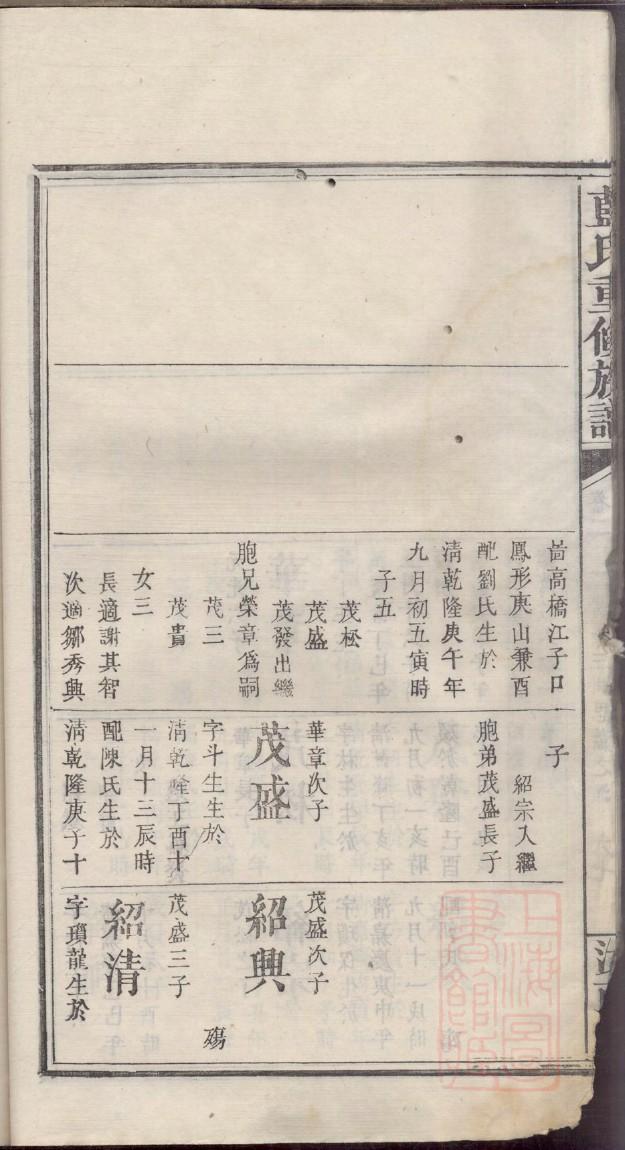 藍氏重修族譜
啚高橋江子口
鳳形庚山兼酉
配劉氏生於
清乾隆庚午年
九月初五寅時
子五
茂松
茂盛
茂發出繼
胞兄榮章為嗣
茂三
茂貴
女三
長適謝其智
次適鄒秀興
子
紹宗入繼
胞弟茂盛長子
華章次子
茂盛
字斗生生於
清乾隆丁酉十
一月十三辰時
配陳氏生於
清乾隆庚子十
茂盛次子
紹興
殤
茂盛三子
紹清
字瑣龍生於
上海圖書館藏